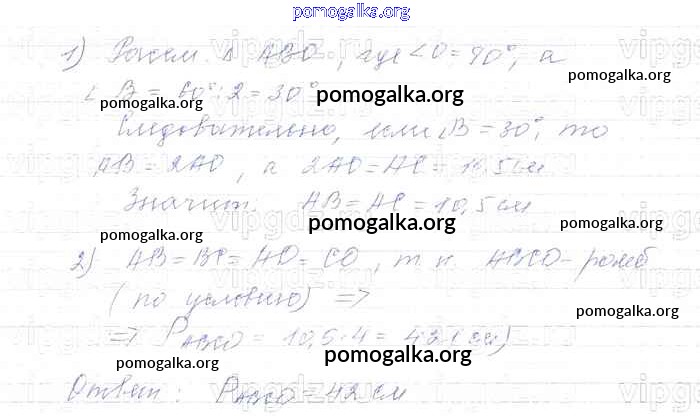 pomogalka.org
1) Рассм. Δ ABO, где ∠O = 90°, а
∠B = 60° : 2 = 30°
pomogalka.org
pomogalka.org
pomogalka.org
Следовательно, если ∠B = 30°, то
AB = 2AO, а 2AO = AC = 10,5 см
pomogalka.org
pomogalka.org
Значит. AB = AC = 10,5 см
pomogalka.org
pomogalka.org
pomogalka.org
2) AB = BC = AD = CD, т.к. ABCD - ромб
(по условию) =>
=> P ABCD = 10,5 · 4 = 42 (см)
pomogalka.org
pomogalka.org
pomogalka.org
Ответ: P ABCD = 42 см